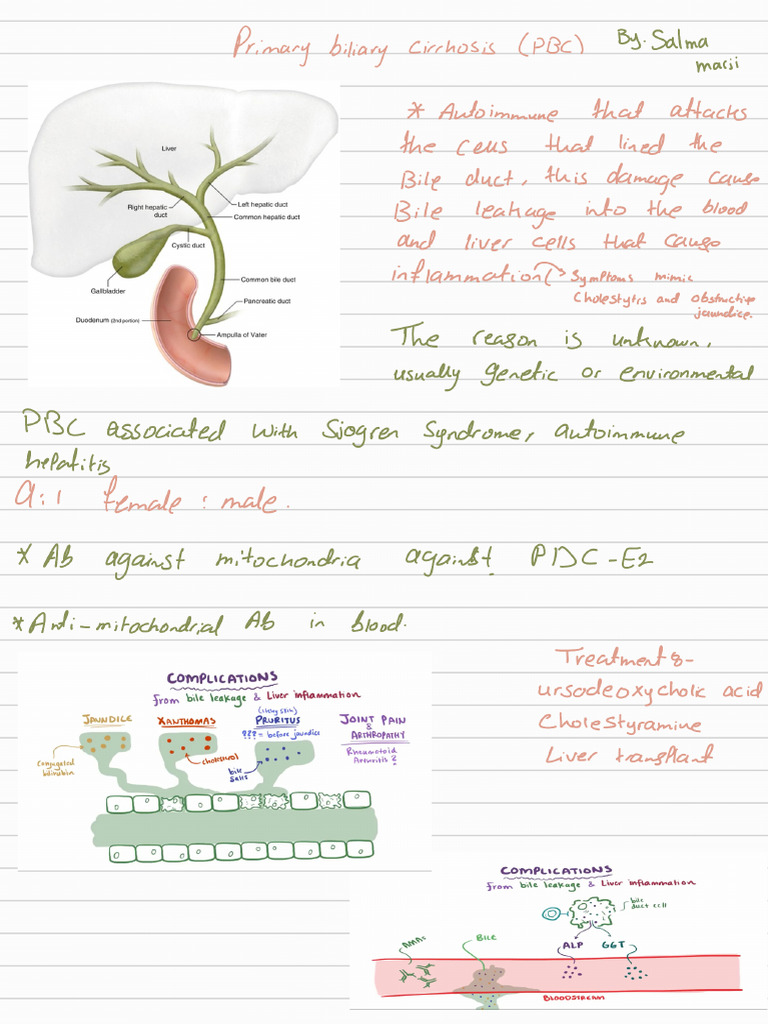 Primary biliary cirrhosis (PBC)
By. Salma
marji
* Autoimmune that attacks
the cells that lined the
Bile duct, this damage cause
Bile leakage into the blood
and liver cells that cause
inflammation( → Symptoms mimic
Cholestytis and obstructive
jaundice.
The reason is unknown,
usually genetic or environmental
Liver
Right hepatic
duct
Left hepatic duct
Common hepatic duct
Cystic duct
Gallbladder
Common bile duct
Pancreatic duct
Duodenum (2nd portion)
Ampulla of Vater
PBC associated with Sjogren Syndrome, autoimmune
hepatitis
9:1 female : male.
* Ab against mitochondria against PDC-E2
* Anti-mitochondrial Ab in blood.
Treatment:-
ursodeoxycholic acid
Cholestyramine
Liver transplant
COMPLICATIONS
from bile leakage & Liver inflammation
JAUNDICE
conjugated
bilirubin
XANTHOMAS
cholesterol
(itchy skin)
PRURITUS
??? = before jaundice
bile
salts
JOINT PAIN
&
ARTHROPATHY
Rheumatoid
Arthritis?
COMPLICATIONS
from bile leakage & Liver inflammation
bile
duct cell
AMAs
BILE
ALP
GGT
BLOODSTREAM